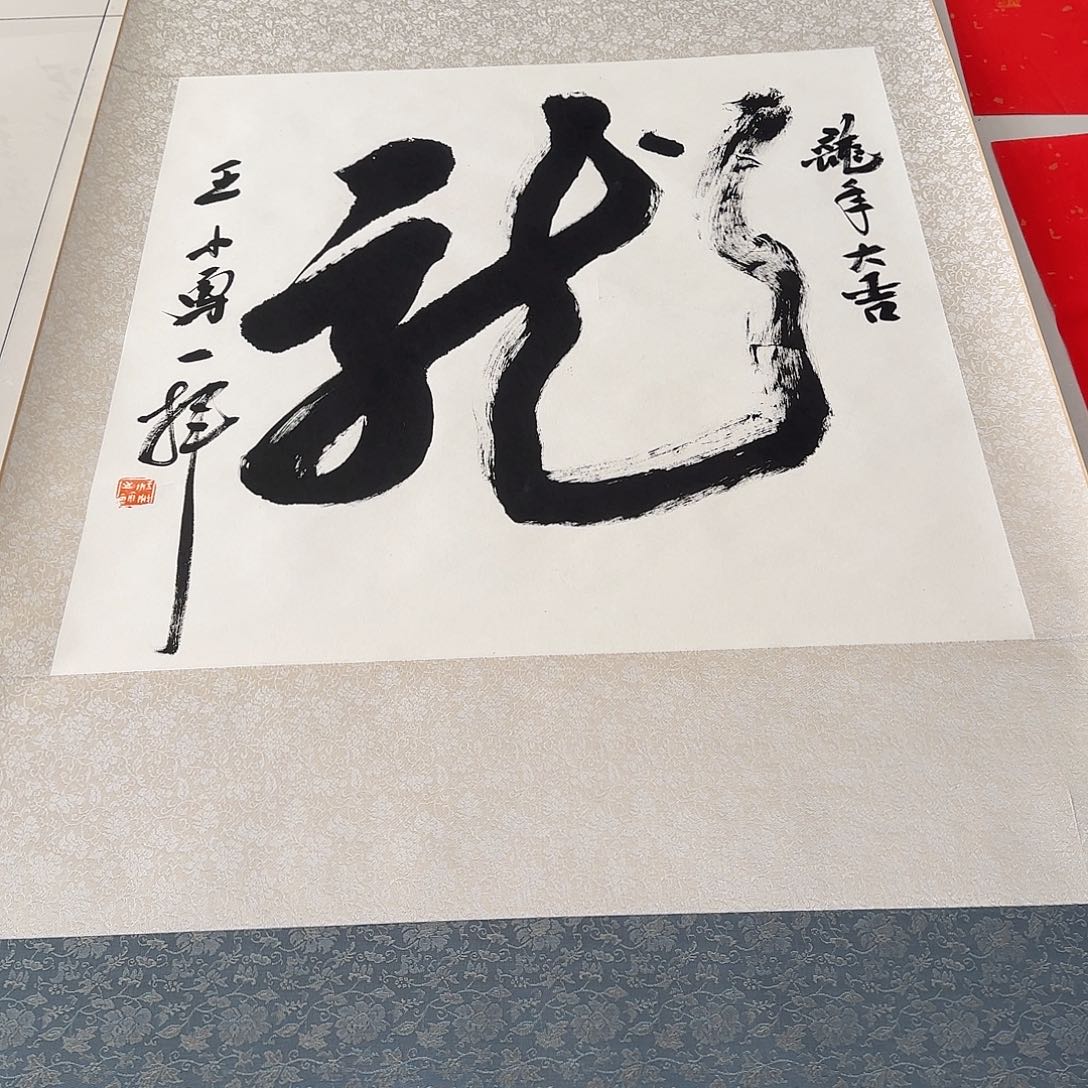 龍年大吉
龍
王小勇一揮